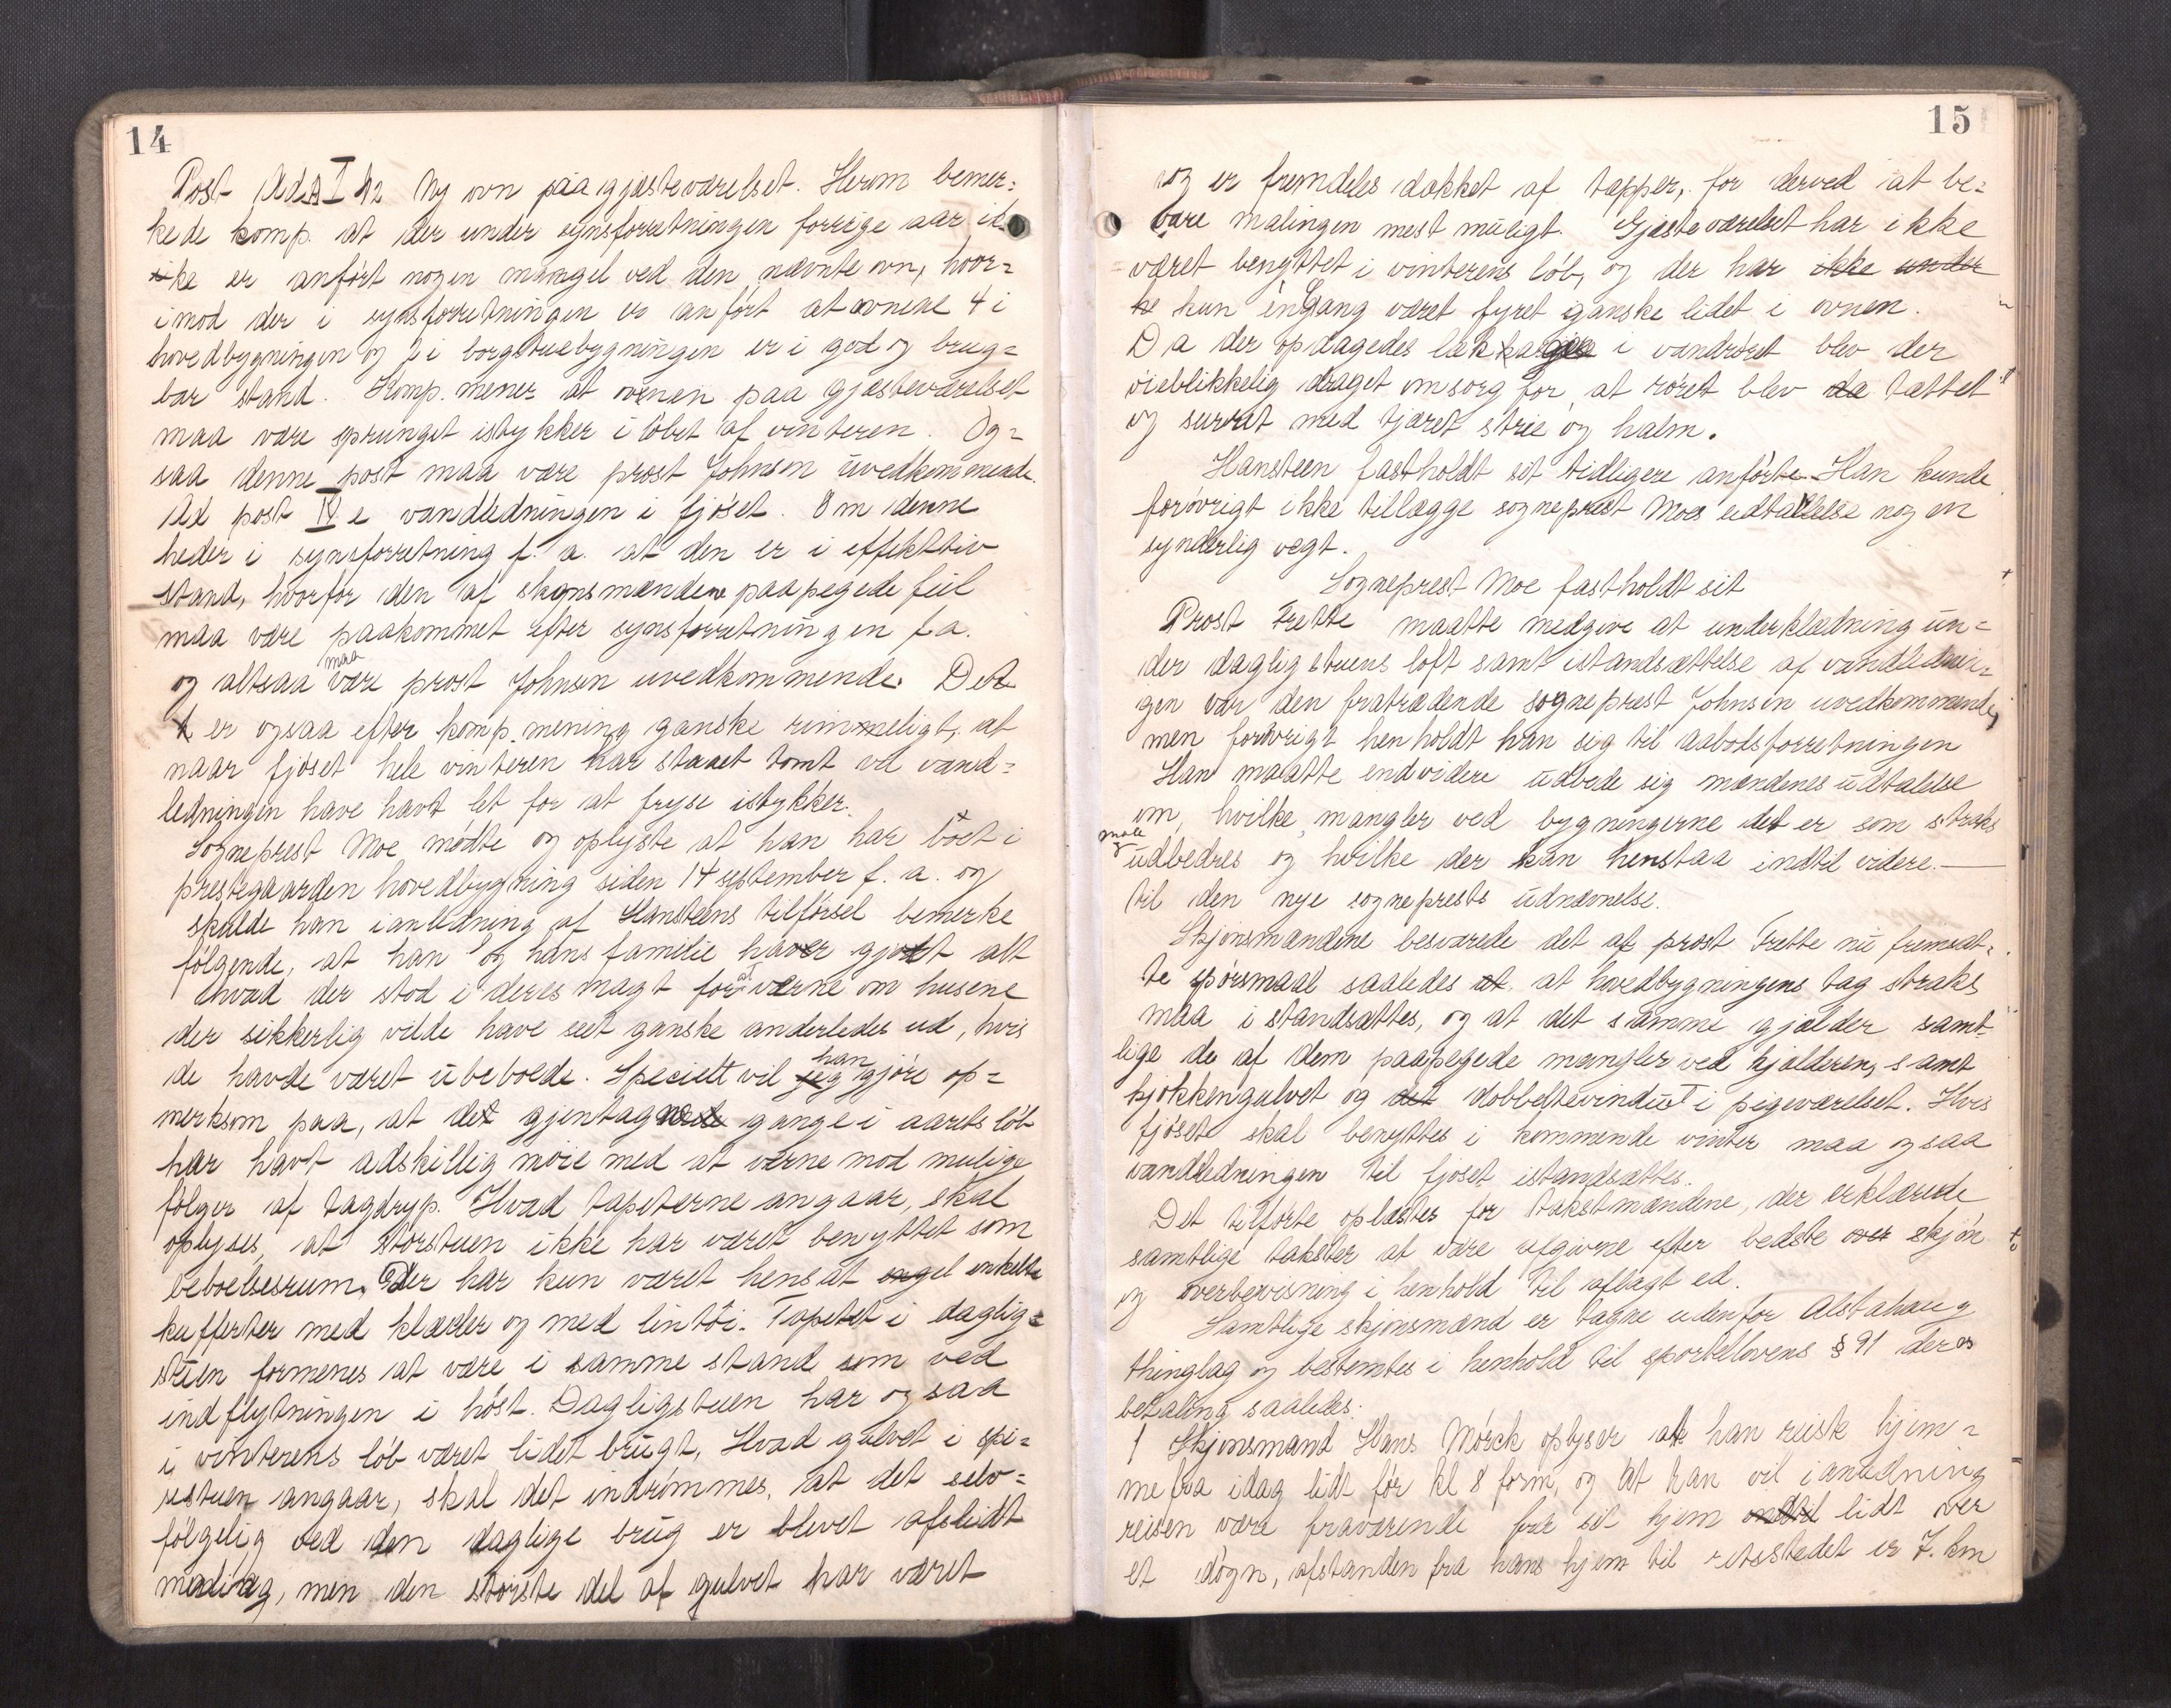 14
Post Ad A I 42 Ny ovn paa gjæsteværelset. Herom bemer=
kede komp. at der under synsforretningen forrige aar ik
ke er anført nogen mangel ved den nævnte ovn, hvor=
imod der i synsforretningen er anført at ovnene 4 i
hovedbygningen og i borgstuebygningen er i god og brug=
bar stand. Komp. mener at ovnen paa gjæsteværelset
maa være sprunget istykker i løbet af vinteren. Og=
saa denne post maa være prost Johnsen uvedkommende.
Ad post IV e vandledningen i fjøset. Om denne
heder i synsforretning f. a. at den er i effektiv
stand, hvorfor den af skjønsmændene paapegede feil
maa være paakommet efter synsforretningen f.a.
og altsaa maa være prost Johnsen uvedkommende. Det
er ogsaa efter komp. mening ganske rimmeligt, at
naar fjøset hele vinteren har staaet tomt vil vand=
ledningen have havt let for at fryse istykker.
Sogneprest Moe mødte og oplyste at han har boet i
prestegaarden hovedbygning siden 14 september f. a. og
skulde han i anledning af Hansteens tilførsel bemerke
følgende, at han og hans familie haver gjort alt
hvad der stod i deres magt for at værne om husene
der sikkerlig vilde have seet ganske anderledes ud, hvis
de havde været ubeboede. Specielt vil jeg han gjøre op=
merksom paa, at det gjentagne gange i aarets løb
har havt adskillig møie med at verne mod mulige
følger af tagdryp. Hvad tapeterne angaar, skal
oplyses, at storstuen ikke har været benyttet som
beboelsesrum. Der har kun været hensat engel enkelte
kufferter med klæder og med lintøi. Tapetet i daglig=
stuen formenes at være i samme stand som ved
indflytningen i høst. Dagligstuen har ogsaa
i vinterens løb været lidet brugt, Hvad gulvet i spi=
sestuen angaar, skal det indrømmes, at det selv=
følgelig ved den daglige brug er blevet afslidt
maling, men den største del af gulvet har været
15
og er fremdeles dækket af tæpper, for derved at be=
vare malingen mest muligt. Gjæsteværelset har ikke
været benyttet i vinterens løb, og der har ikke under
kun en gang været fyret ganske lidet i ovnen.
Da der opdagedes lækkage i vandrøret blev der
øieblikkelig draget omsorg for, at røret blev da tættet
og surret med tjæret strie og halm.
Hansteen fastholdt sit tidligere anførte. Han kunde
forøvrigt ikke tillægge sogneprest Moes udtallelse nogen
synderlig vægt.
Sogneprest Moe fastholdt sit
Prost Frette maatte medgive at underklædning un=
der dagligstuens loft samt istandsættelse af vandlednin=
gen var den fratrædende sogneprest Johnsen uvedkommende,
men forøvrigt henholdt han sig til aabodsforretningen
Han maatte endvidere udbede sig mændenes udtalelse
om, hvilke mangler ved bygningerne det er som straks
maa udbedres og hvilke der kan henstaa indtil videre.—
til den nye sogneprests udnævnelse.
Skjønsmændene besvarede det af prost Frette nu fremsat=
te spørsmaal saaledes at at hovedbygningens tag straks
maa istandsættes, og at det samme gjælder samt=
lige de af dem paapegede mangler ved kjælderen, samt
kjøkkengulvet og det dobbeltevinduet i pigeværelset. Hvis
fjøset skal benyttes i kommende vinter maa ogsaa
vandledningen til fjøset istandsættes.
Det tilførte oplæstes for takstmændene, der erklærede
samtlige takster at være afgivne efter bedste over skjøn
og overbevisning i henhold til aflagt ed.
Samtlige skjønsmænd er tagne udenfor Alstahaug
thinglag og bestemtes i henhold til sportellovens § 91 deres
betaling saaledes:
1 Skjønsmand Hans Mørck oplyser at han reiste hjem=
mefra idag lidt før kl 8 form, og at han vil i anledning
reisen være fraværende fra sit hjem lidt over
et døgn, afstanden fra hans hjem til retsstedet er 7. km